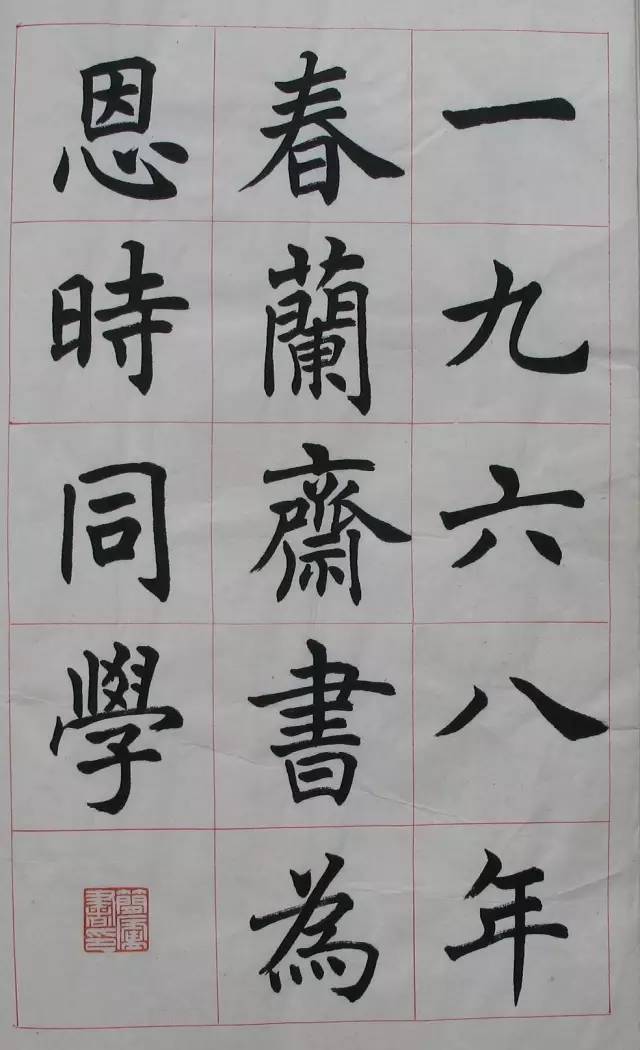 一九六八年
春蘭齋書為
恩時同學